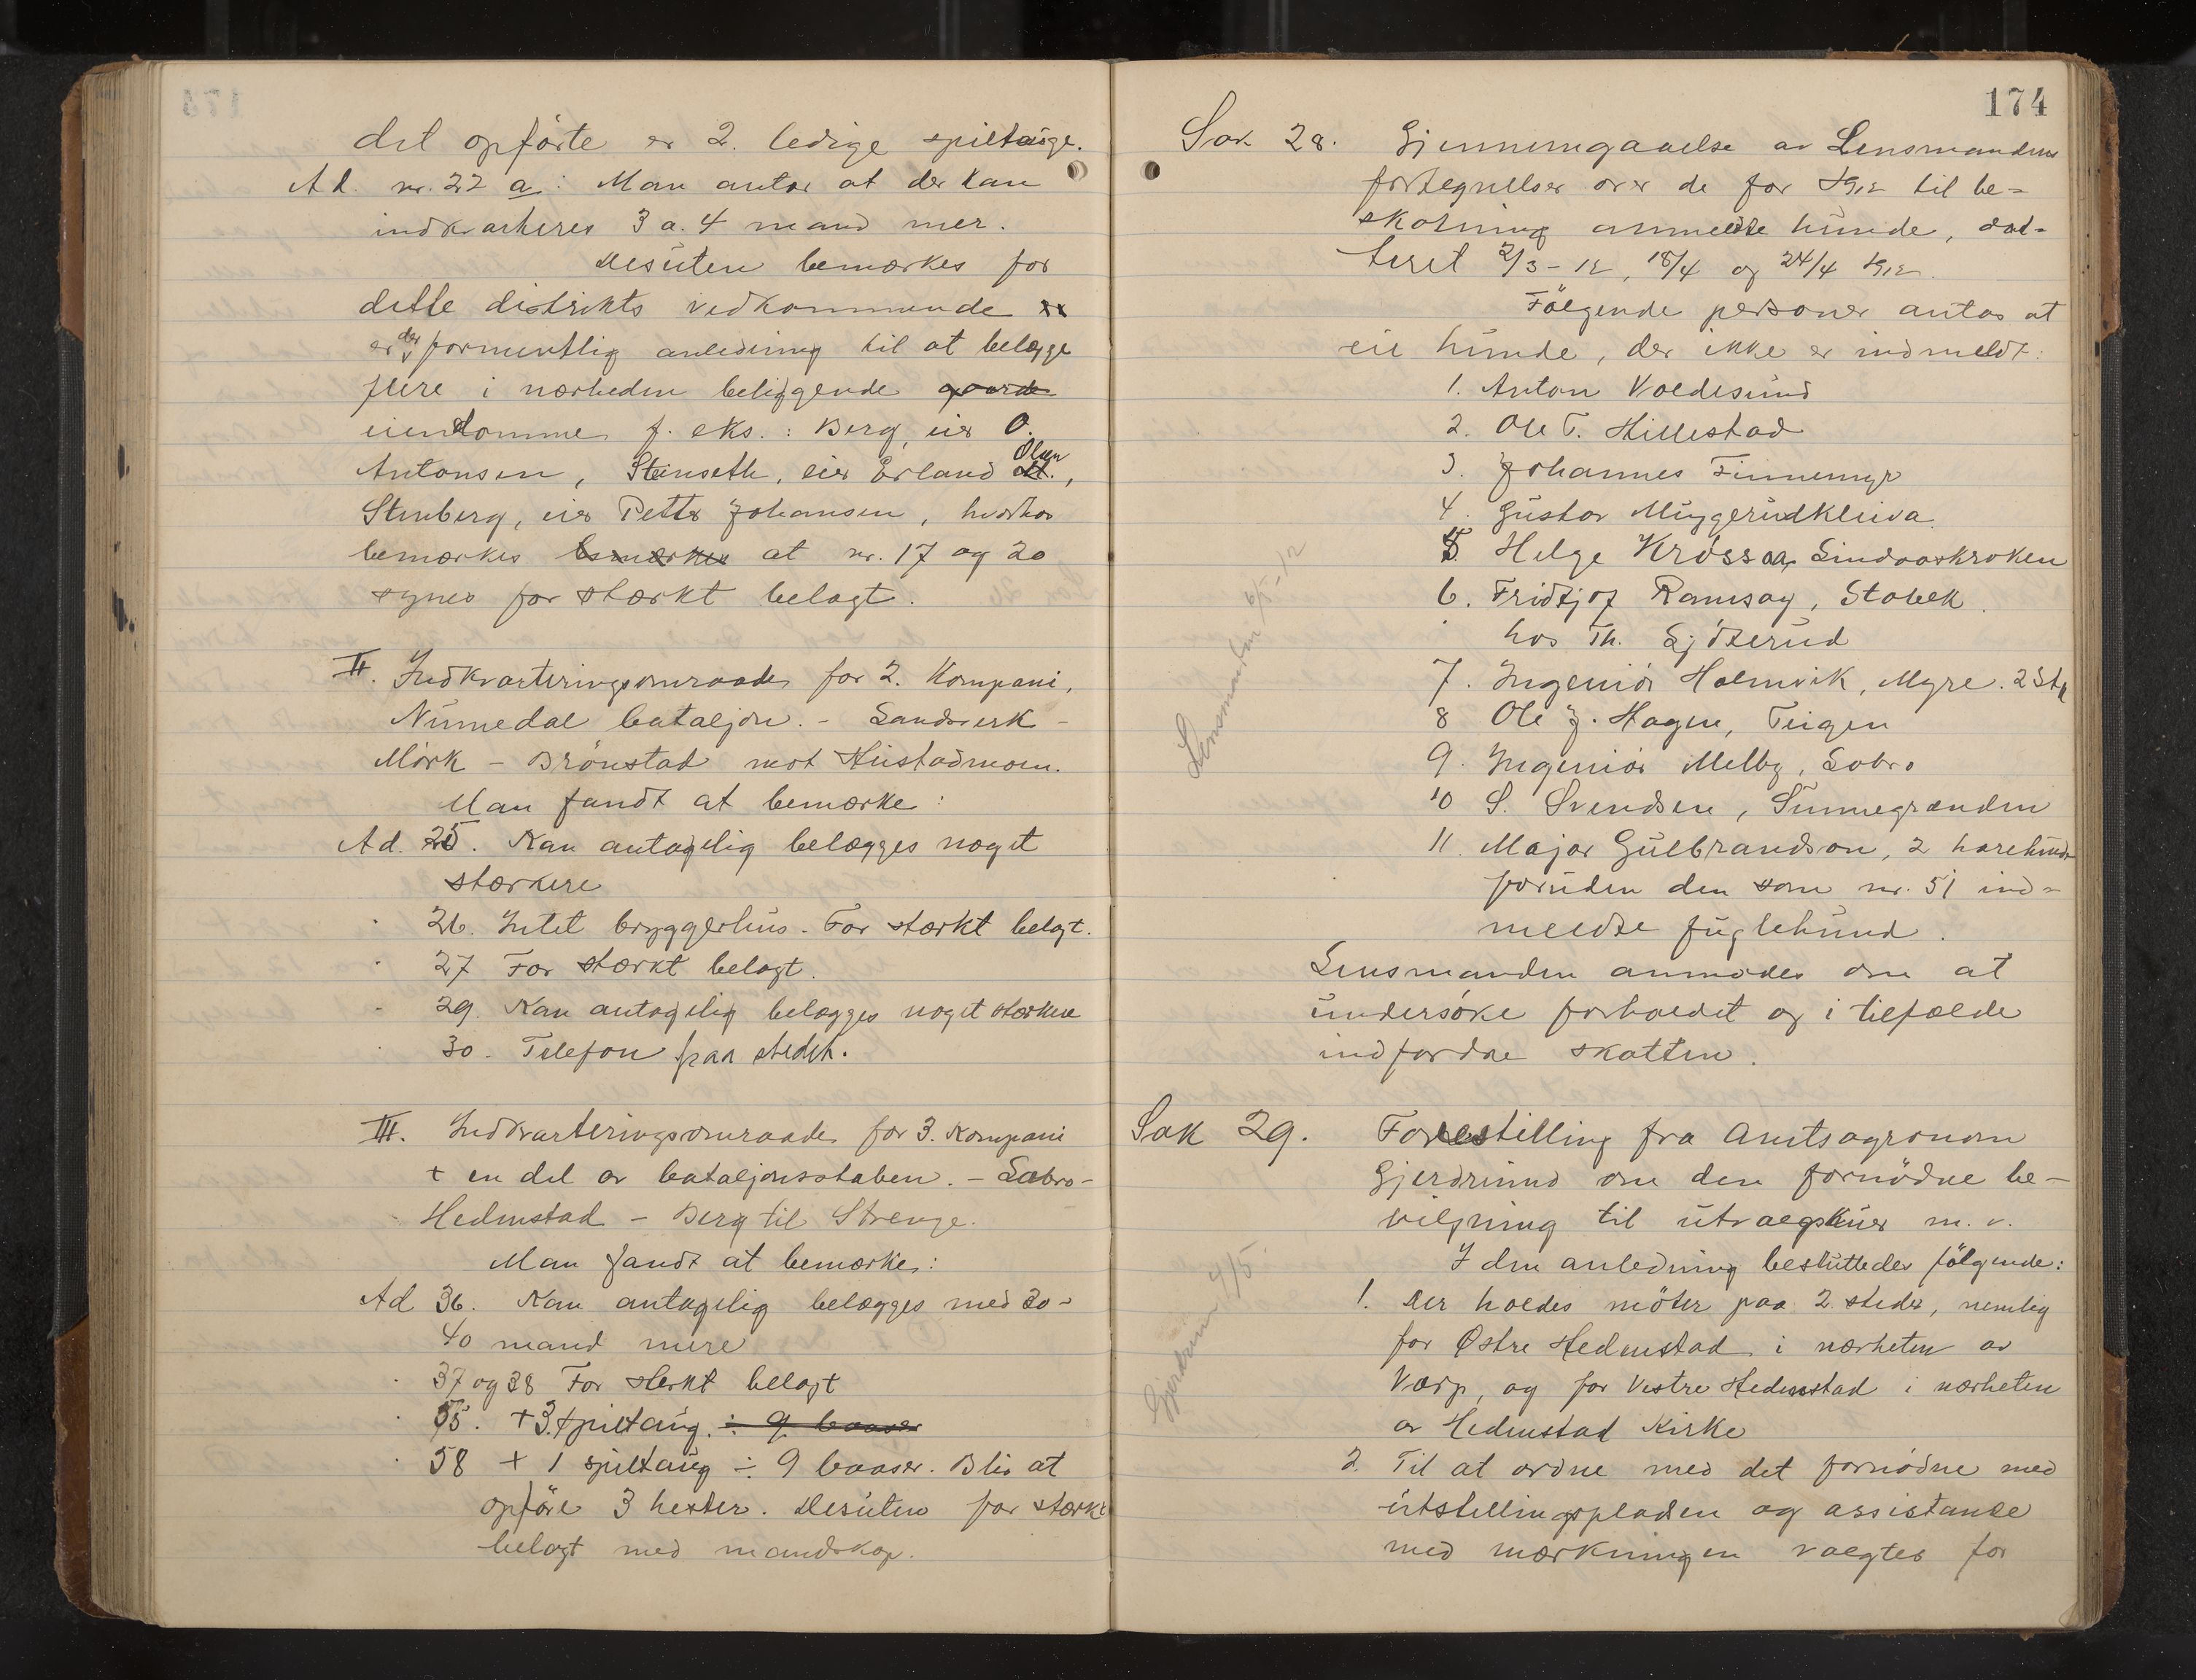 det opførte er 2. ledige spiltauge.
Ad. nr. 22 a: Man antar at der kan
indkvarteres 3 a. 4 mand mer.
Desuten bemærkes for
dette distrikts vedkommende
er der formentlig anledning til at belægge
flere i nærheden beliggende gaarde
eiendomme f. eks.: Berg, eier O.
Antonsen, Stenseth, eier Erland Olsen,
Stenberg, eier Petter Johansen, hvorhos
bemærkes bemærkes at nr. 17 og 20
synes for stærkt belagt.
II. Indkvarteringsomraade for 2. Kompani,
Numedal bataljon. - Sandsverk -
Mørk - Brønstad mot Hustadmoen.
Man fandt at bemærke:
Ad. 25. Kan antagelig belægges noget
stærkere
" 26. Intet bryggerhus. For stærkt belagt.
" 27 For stærkt belagt.
" 29. Kan antagelig belægges noget stærkere
" 30. Telefon paa stedet.
III. Indkvarteringsomraade for 3. Kompani
+ en del av bataljonsstaben. - Labro -
Hedenstad - Berg til Strenge.
Man fandt at bemærke:
Ad 36. Kan antagelig belægges med 30-
40 mand mere
" 37 og 38 For sterkt belagt
" 55. +3 spiltaug. ÷ 9 baaser
" 58 + 1 spiltaug ÷ 9 baaser. Blir at
opføre 3 hester. Desuten for stærkt
belagt med mandskap.
174
Sak 28. Gjennemgaaelse av Lensmandens
fortegnelser over de for 1912 til be-
skatning anmeldte hunde, dat-
teret 2/3-12, 18/4 og 24/4 1912.
Følgende personer antas at
eie hunde, der ikke er indmeldt:
1. Anton Voldesund
2. Ole T. Hillestad
3. Johannes Finnemyr
4. Gustav Muggerudkleiva
5. Helge Krøssaa, Lindaaskroken
6. Fridtjof Ramsay, Stabek.
hos Th. Sjøterud
7. Ingeniør Holmvik, Myre. 2 Stk
8 Ole J. Hagen, Teigen
9. Ingeniør Melby, Labro
10 S. Svendsen, Tunnegrænden
11. Major Gulbrandson, 2 harehunde
foruden den som nr. 51 ind-
meldte fuglehund.
Lensmanden anmodes om at
undersøke forholdet og i tilfælde
indfordre skatten.
Lensmanden 6/5-12
Sak 29. Forestilling fra Amtsagronom
Gjerdrum om den fornødne be-
vilgning til utvalgskuer m. v.
I den anledning besluttedes følgende:
1. Der holdes møter paa 2 steder, nemlig
for Østre Hedenstad i nærheten av
Varp, og for Vestre Hedenstad i nærheten
av Hedenstad Kirke
2. Til at ordne med det fornødne med
utstillingspladsen og assistanse
med mærkningen valgtes for
Gjerdrum 4/5.